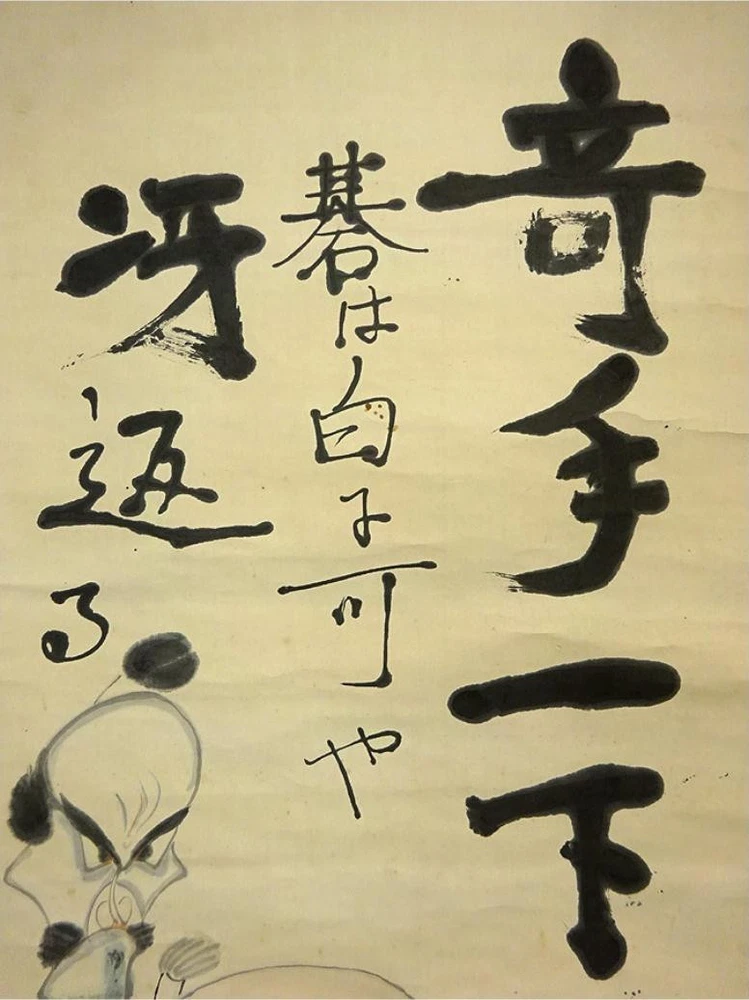 竒手一下
碁は白子可や
冴返る